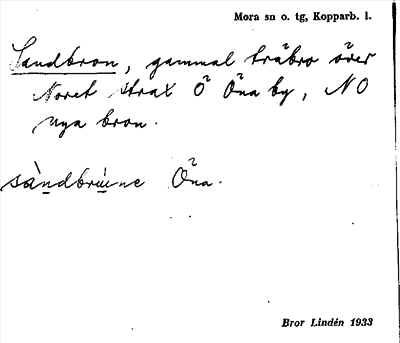 Mora sn o. tg, Kopparb. l.
Sandbron, gammal träbro över
Noret strax Ö Öna by, NO
nya bron.
sàndbrùnne Öna.
Bror Lindén 1933